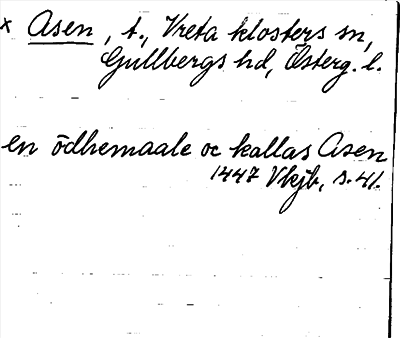 x Asen, t., Vreta klosters sn,
Gullbergs hd, Österg. l.
en ödhemaale oc kallas Asen
1447 Vkjb, s. 41.